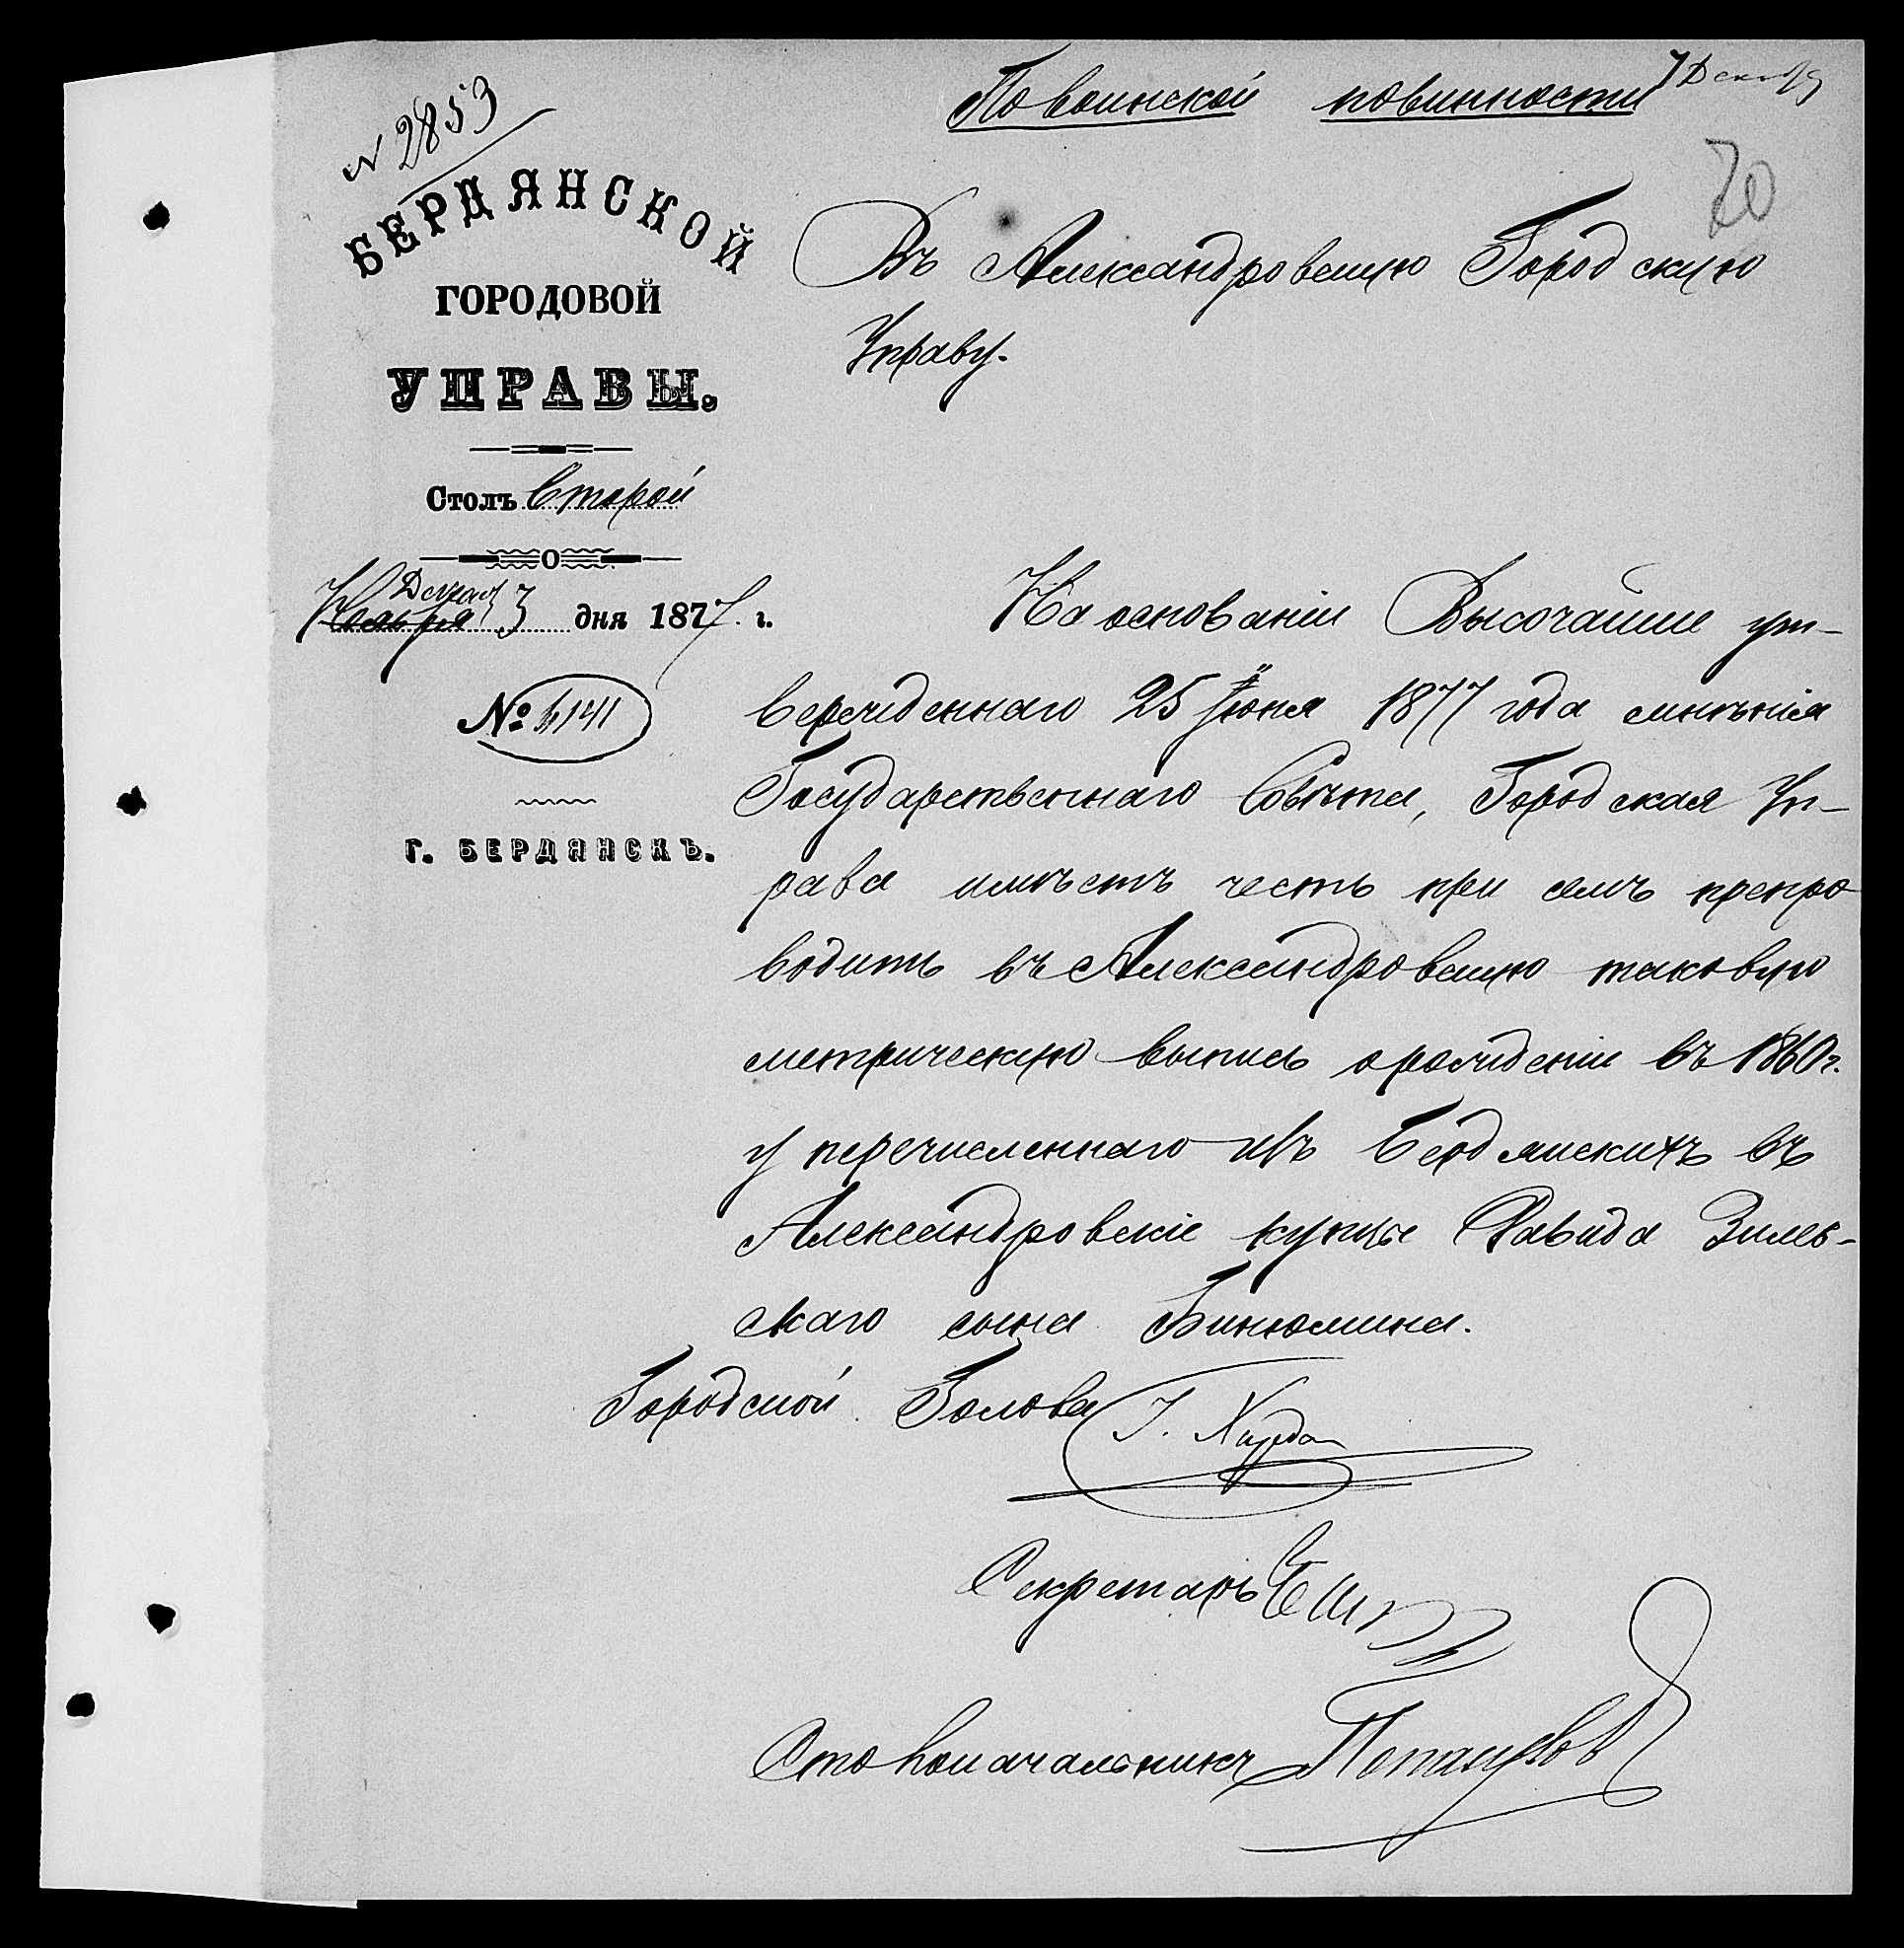 По воинской повинности
7 Декабр
N 2853
20
БЕРДЯНСКОЙ
ГОРОДОВОЙ
УПРАВЫ.
Столъ Второй
Ноября Декаб 3 дня 1877 г.
№ 4141
г. БЕРДЯНСКЪ.
Въ Александровскую Городскую
Управу.
На основаніи Высочайше ут-
вержденнаго 25 Іюня 1877 года мнѣнія
Государственнаго Совѣта, Городская Уп-
рава имѣетъ честь при семъ препро
водить въ Александровскую таковую
метрическую выпись о рожденіи въ 1860 г.
у перечисленнаго изъ Бердянскихъ въ
Александровскіе купцы Давида Зилев-
скаго сына Бинюмина.
Городской Голова
Секретарь
Столоначальникъ